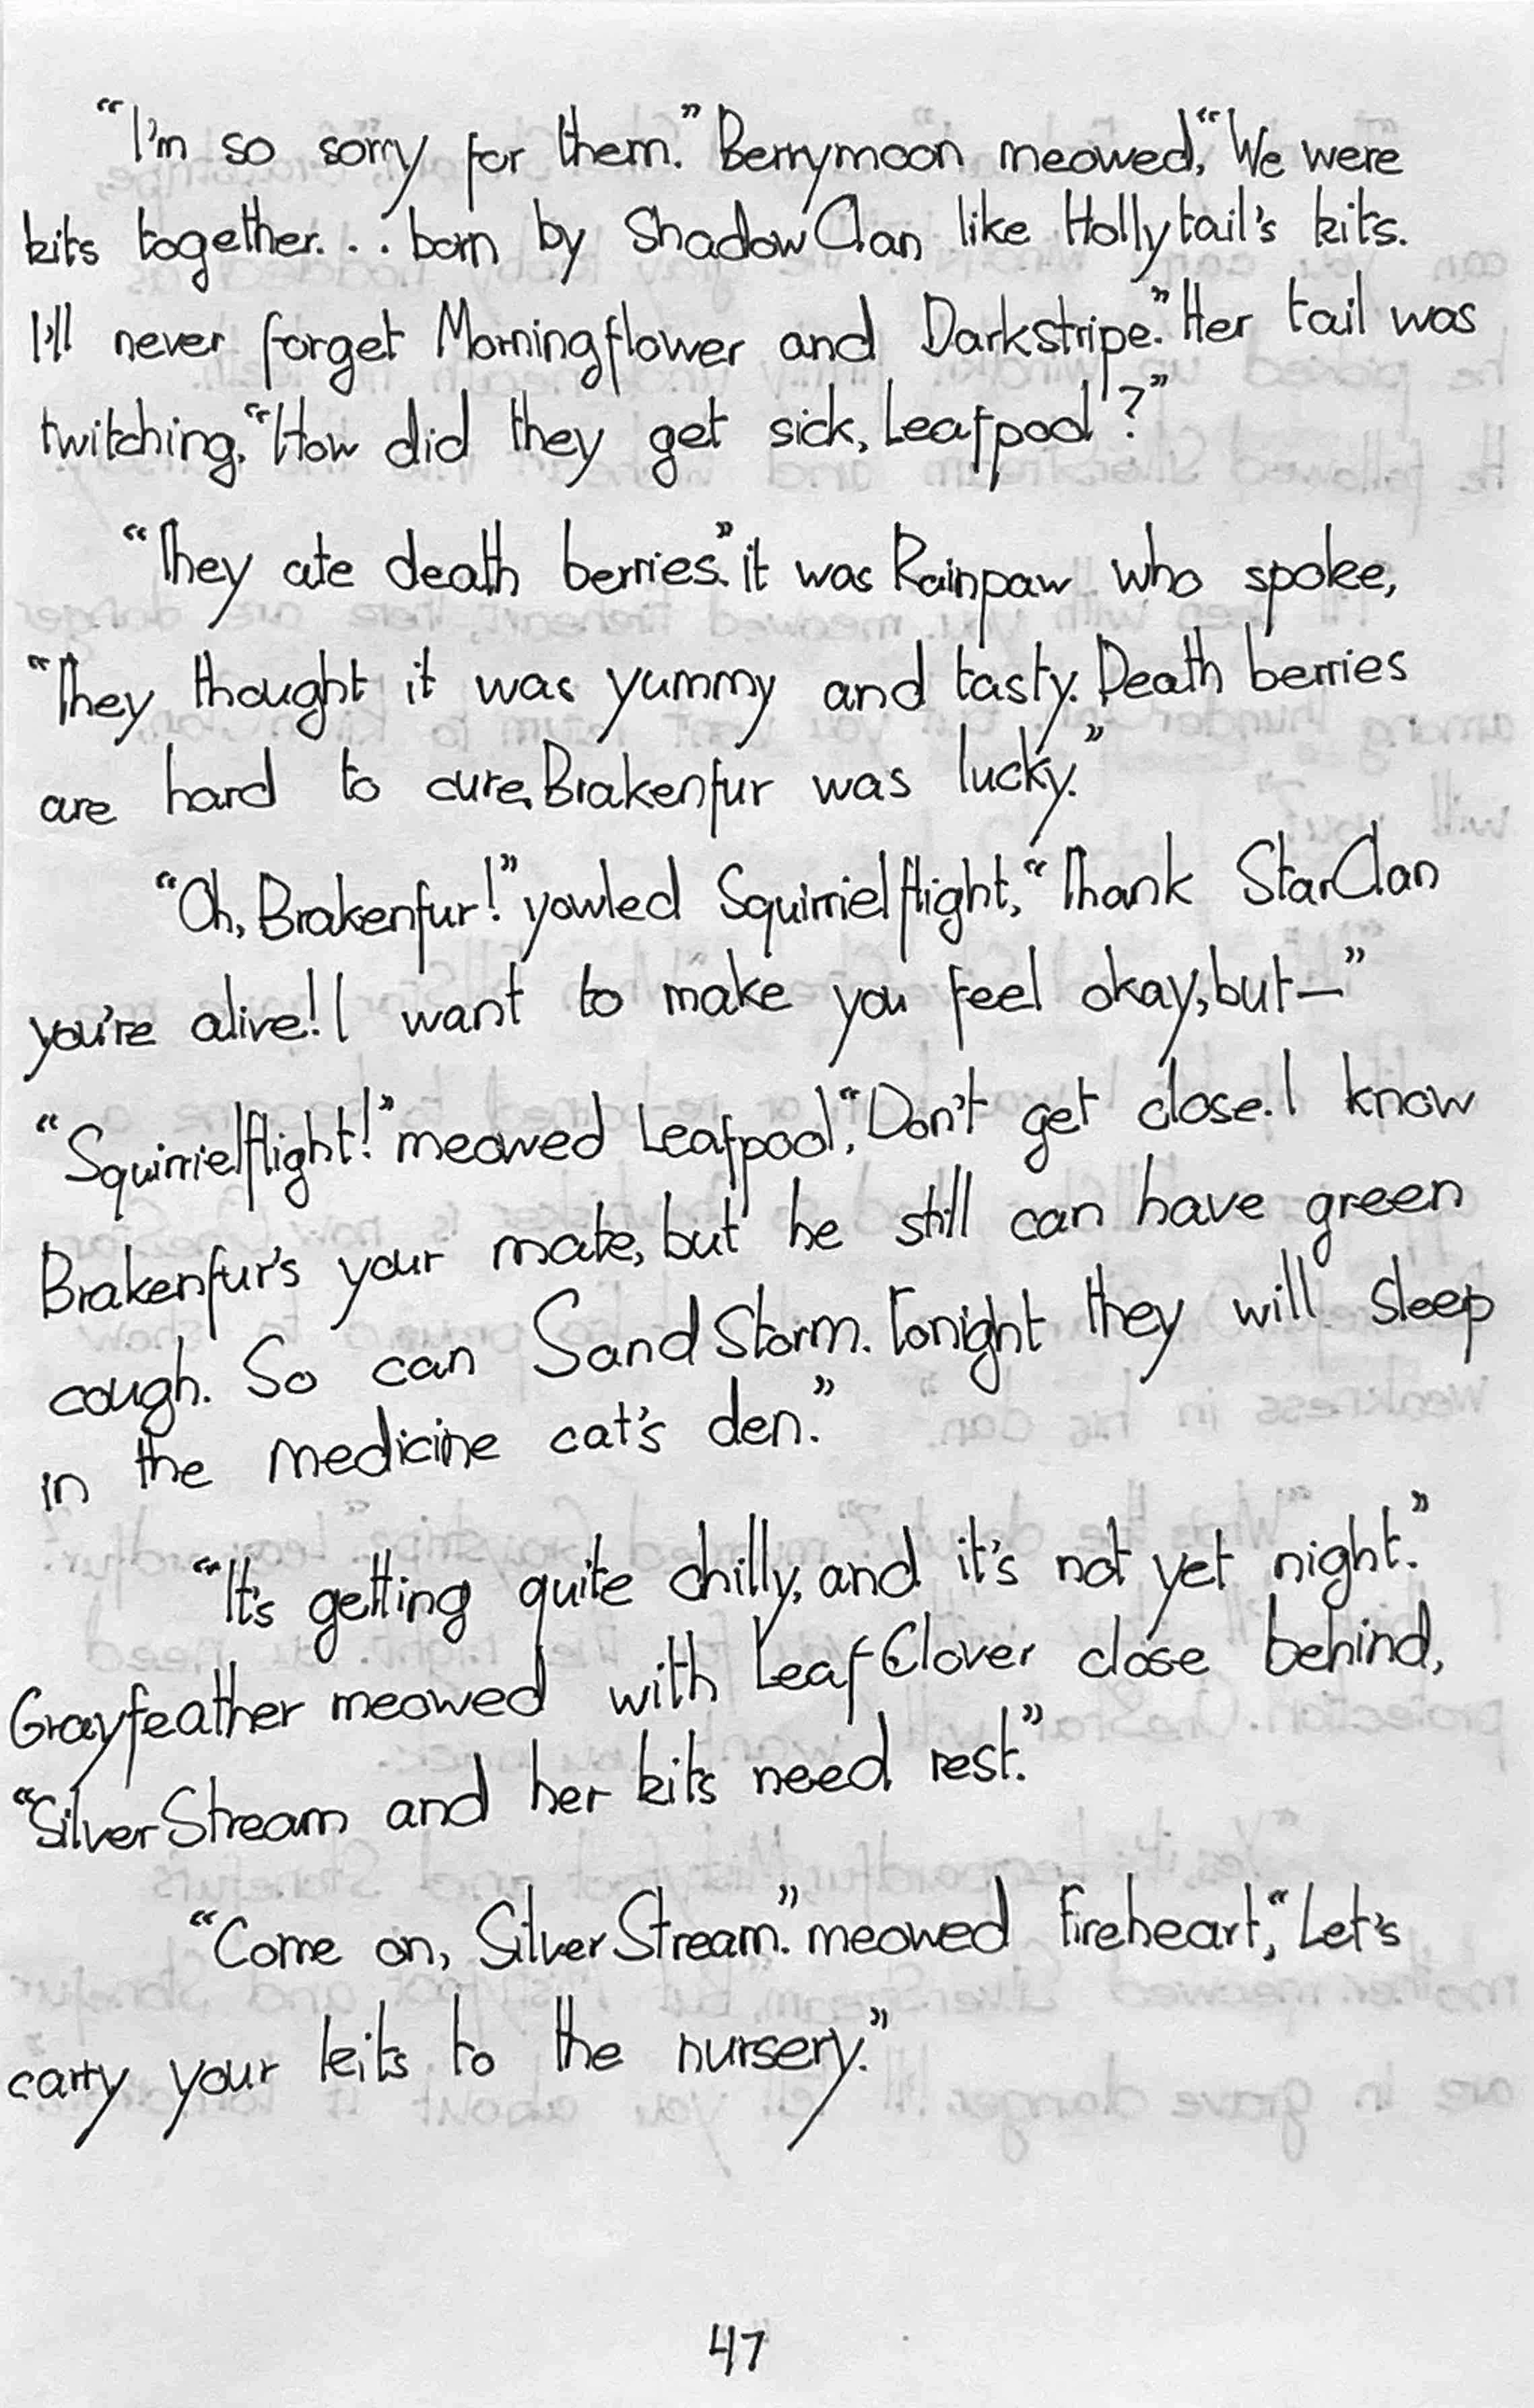 "I'm so sorry for them." Berrymoon meowed, "We were
kits together... born by ShadowClan like Hollytail's kits.
I'll never forget Morningflower and Darkstripe." Her tail was
twitching. "How did they get sick, Leafpool?"
"They ate death berries." it was Rainpaw who spoke,
"They thought it was yummy and tasty. Death berries
are hard to cure, Brakenfur was lucky."
"Oh, Brakenfur!" yowled Squirrielflight, "Thank StarClan
you're alive! I want to make you feel okay, but—"
"Squirrielflight!" meowed Leafpool, "Don't get close. I know
Brakenfur's your mate, but he still can have green
cough. So can SandStorm. Tonight they will sleep
in the medicine cat's den."
"It's getting quite chilly, and it's not yet night."
Grayfeather meowed with LeafClover close behind,
"SilverStream and her kits need rest."
"Come on, SilverStream." meowed Fireheart, "Let's
carry your kits to the nursery."
47